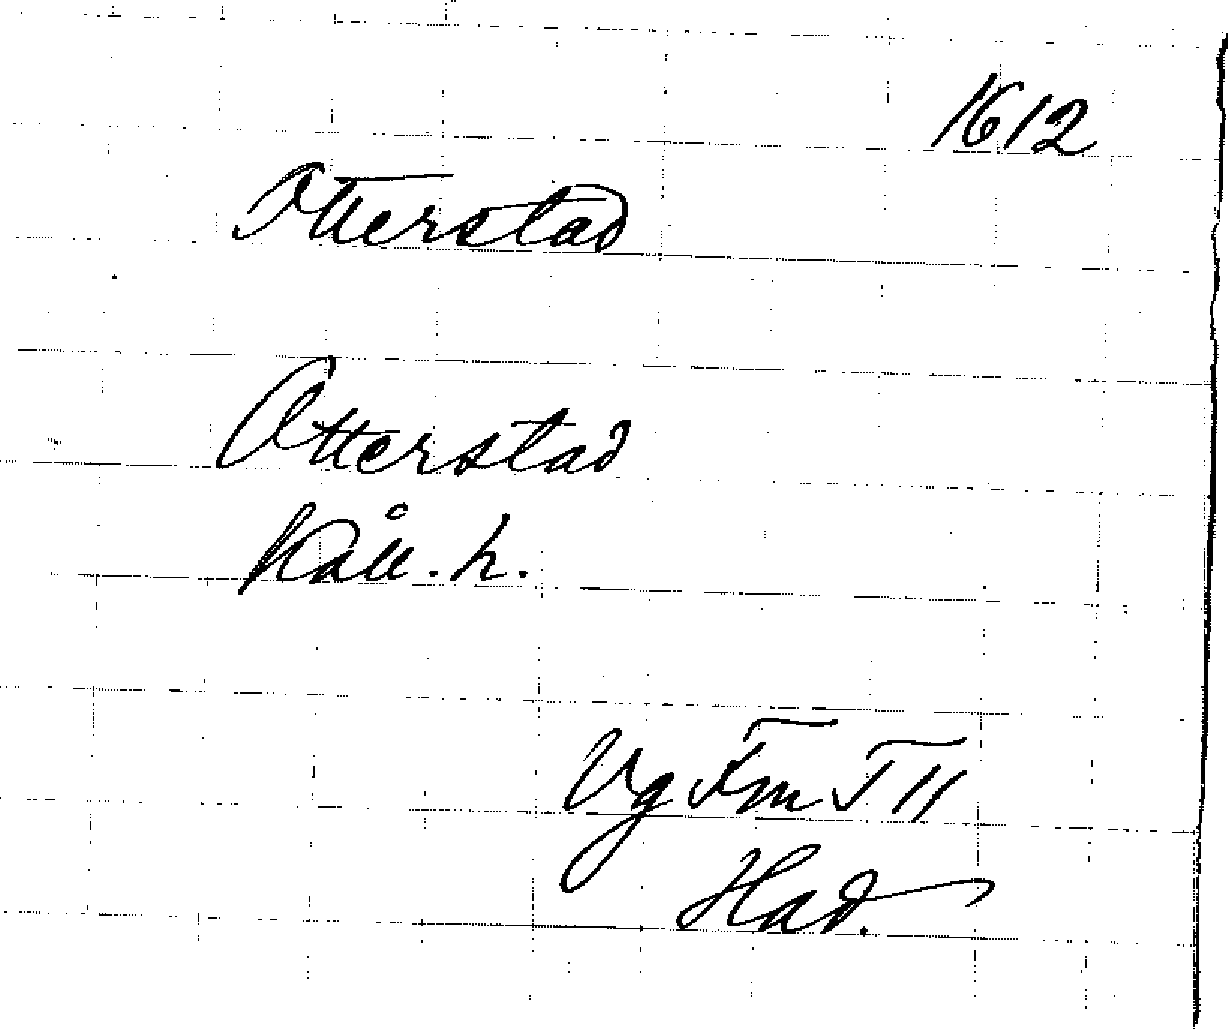 1612
Otterstad
Otterstad
Kåll. h.
Vg Fm T 11
Had.